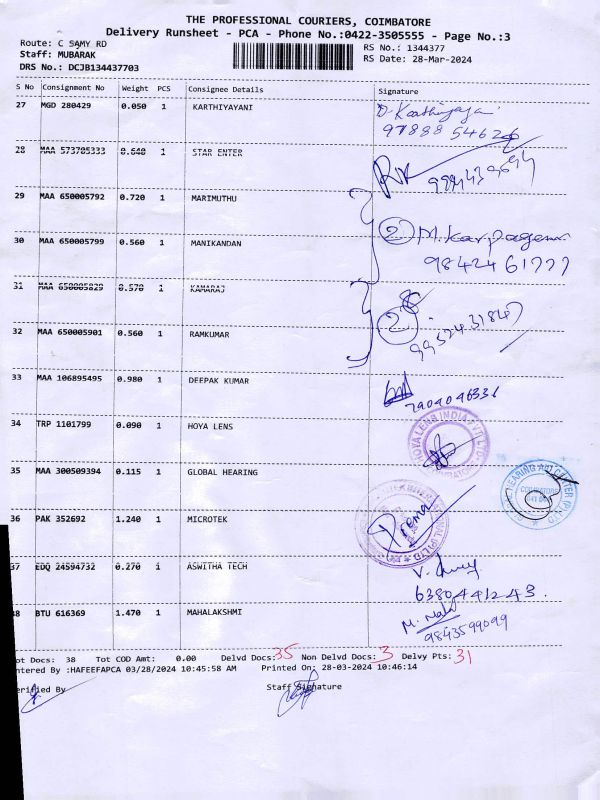 THE PROFESSIONAL COURIERS, COIMBATORE
Delivery Runsheet - PCA - Phone No.:0422-3505555 - Page No.:3
Route: C SAMY RD
RS No.: 1344377
Staff: MUBARAK
RS Date: 28-Mar-2024
DRS No.: DCJB134437703
S No Consignment No Weight PCS Consignee Details Signature
27 MGD 280429 0.050 1 KARTHIYAYANI
D. Karthiyayani
97888 54626
28 MAA 573705333 0.640 1 STAR ENTER
29 MAA 650005792 0.720 1 MARIMUTHU
30 MAA 650005799 0.560 1 MANIKANDAN
2 M. Karpagam
9842461777
31 MAA 650005829 0.570 1 KAMARAJ
2
32 MAA 650005901 0.560 1 RAMKUMAR
9952431847
33 MAA 106895495 0.980 1 DEEPAK KUMAR
7904046336
34 TRP 1101799 0.090 1 HOYA LENS
HOYA LENS INDIA PVT LTD
35 MAA 300509394 0.115 1 GLOBAL HEARING
HEARING AID CENTER (P) LTD
36 PAK 352692 1.240 1 MICROTEK
Prema
37 EDQ 24594732 0.270 1 ASWITHA TECH
6380441243.
38 BTU 616369 1.470 1 MAHALAKSHMI
9843599099
ot Docs: 38 Tot COD Amt: 0.00 Delvd Docs: 35 Non Delvd Docs: 3 Delvy Pts: 31
ntered By :HAFEEFAPCA 03/28/2024 10:45:58 AM Printed On: 28-03-2024 10:46:14
erified By Staff Signature